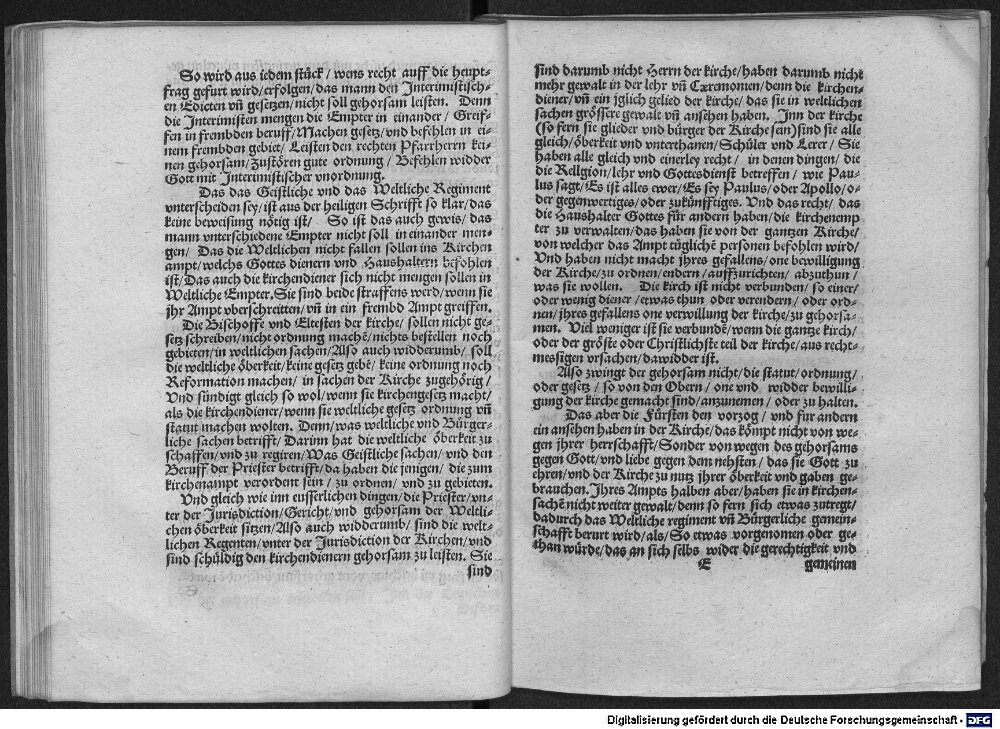 So wird aus iedem stück / wens recht auff die heupt-
frag gefurt wird / erfolgen / das mann den Interimistisch-
en Edicten vñ gesetzen / nicht soll gehorsam leisten. Denn
die Interimisten mengen die Empter in einander / Greif-
fen in frembden beruff / Machen gesetz / vnd befehlen in ei-
nem frembden gebiet / Leisten den rechten Pfarrherrn kei-
nen gehorsam / Zustören gute ordnung / Befehlen widder
Gott mit Interimistischer vnordnung.
Das das Geistliche vnd das Weltliche Regiment
vnterscheiden sey / ist aus der heiligen Schrifft so klar / das
keine beweisung nötig ist / So ist das auch gewis / das
mann vnterschiedene Empter nicht soll in einander men-
gen / Das die Weltlichen nicht fallen sollen ins Kirchen
ampt / welchs Gottes dienern vnd Haushaltern befohlen
ist / Das auch die kirchendiener sich nicht mengen sollen in
Weltliche Empter. Sie sind beide straffens werd / wenn sie
jhr Ampt vberschreitten / vñ in ein frembd Ampt greiffen.
Die Bischoffe vnd Eltesten der kirche / sollen nicht ge-
setz schreiben / nicht ordnung machē / nichts bestellen noch
gebieten / in weltlichen sachen / Also auch widderumb / soll
die weltliche öberkeit / keine gesetz gebē / keine ordnung noch
Reformation machen / in sachen der Kirche zugehörig /
Vnd sündigt gleich so wol / wenn sie kirchengesetz macht /
als die kirchendiener / wenn sie weltliche gesetz ordnung vñ
statut machen wolten. Denn / was weltliche vnd Bürger-
liche sachen betrifft / Darinn hat die weltliche öberkeit zu
schaffen / vnd zu regiren / Was Geistliche sachen / vnd den
Beruff der Priester betrifft / da haben die jenigen / die zum
kirchenampt verordent sein / zu ordnen / vnd zu gebieten.
Vnd gleich wie inn eusserlichen dingen / die Priester / vn-
ter der Jurisdiction / Gericht / vnd gehorsam der Weltli-
chen öberkeit sitzen / Also auch widderumb / sind die welt-
lichen Regenten / vnter der Jurisdiction der Kirchen / vnd
sind schüldig den kirchendienern gehorsam zu leisten. Sie
sind
sind darumb nicht Herrn der kirche / haben darumb nicht
mehr gewalt in der lehr vñ Cæremonien / denn die kirchen-
diener / vñ ein jglich gelied der kirche / das sie in weltlichen
sachen grössere gewalt vñ ansehen haben. Inn der kirche
(so fern sie glieder vnd bürger der Kirche sein) sind sie alle
gleich / öberkeit vnd vnterthanen / Schüler vnd Lerer / Sie
haben alle gleich vnd einerley recht / in denen dingen / die
die Religion / lehr vnd Gottesdienst betreffen / wie Pau-
lus sagt / Es ist alles ewer / Es sey Paulus / oder Apollo / o-
der gegenwertiges / oder zukünfftiges. Vnd das recht / das
die Haushalter Gottes für andern haben / die kirchenemp
ter zu verwalten / das haben sie von der gantzen Kirche /
von welcher das Ampt tügliche personen befohlen wird /
Vnd haben nicht macht jhres gefallens / one bewilligung
der Kirche / zu ordnen / endern / auffzurichten / abzuthun /
was sie wollen. Die kirch ist nicht verbunden / so einer /
oder wenig diener / etwas thun oder verendern / oder ord-
nen / jhres gefallens one verwillung der kirche / zu gehorsa-
men. Viel weniger ist sie verbundē / wenn die gantze kirch /
oder der gröste oder Christlichste teil der kirche / aus recht-
messigen vrsachen / dawidder ist.
Also zwingt der gehorsam nicht / die statut / ordnung /
oder gesetz / so von den Obern / one vnd widder bewilli-
gung der kirche gemacht sind / anzunemen / oder zu halten.
Das aber die Fürsten den vorzog / vnd fur andern
ein ansehen haben in der Kirche / das kömpt nicht von we-
gen jhrer herrschafft / Sonder von wegen des gehorsams
gegen Gott / vnd liebe gegen dem nehsten / das sie Gott zu
ehren / vnd der Kirche zu nutz jhrer öberkeit vnd gaben ge-
brauchen. Jhres Ampts halben aber / haben sie in kirchen-
sachē nicht weiter gewalt / denn so fern sich etwas zutregt /
dadurch das Weltliche regiment vñ Bürgerliche gemein-
schafft berurt wird / als / So etwas vorgenomen oder ge-
than würde / das an sich selbs wider die gerechtigkeit vnd
E gemeinen
Digitalisierung gefördert durch die Deutsche Forschungsgemeinschaft - DFG